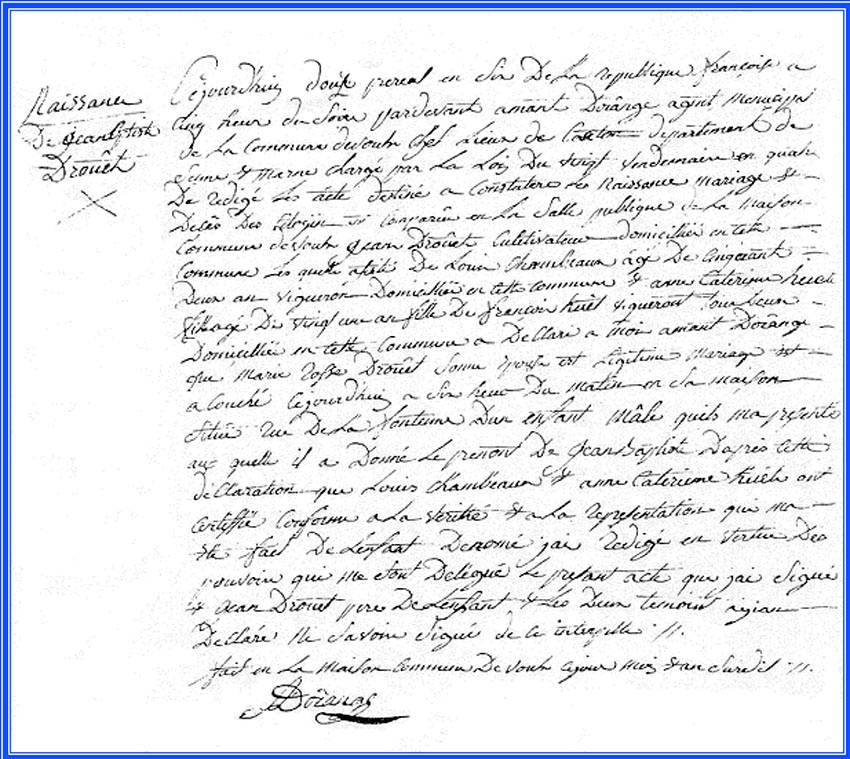 Naissance
De Jean Bptiste
Drouët
Cejourdhuy douse pereal en Six De La republique françoise a
cinq heur du Soire pardevant amant Dorange agent Municipal
de La Commune de voulx Chef Lieux de Canton département de
Seine & Marne chargé par La Loy Du Vingt Vendemiaire en quatre
De redigé Les acte destiné a Constatere Les Naissance Mariage &
Decès Des Citoyin est Comparüe en La Salle publique de La Maison
Commune de voulx Jean Drouët Cultivateur domicillié en cette
Commune Les quele asisté De Louis Chambeaux agé De Cinquant
Deux an Vigueron Domicillié en cette commune & anne Caterinne
fille agé De Vingt une an fille De françois Vigueront
Domicillié en cette Commune a Declaré a Moi amant Dorange
que Marie Drouët Sonne Epouse est Legitime Mariage est
a Couché Cejourdhuy a Six heur Du Matin en Sa Maison
Situé rue De La fontenne Dun enfant Mâle quils ma presenté
auquelle il a Donné Le prenont De Jean Baptiste Daprès cette
déClaration que Louis Chambeaux & anne Caterinne ont
Certiffié Conforme a La Verité & a La representation qui ma
été fait De Lenfant Denomé jai redigé en Vertue Des
pouvoir qui me Sont Delegué Le presant acte que jai Signé
& Jean Drouet pere De Lenfant & Les Deux temoint aijan
Declaré Ne Savoir Signé de ce interpelle ://.
fait en La Maison Commune De voulx Cejour Mois & an Susedit ://.
ADorange